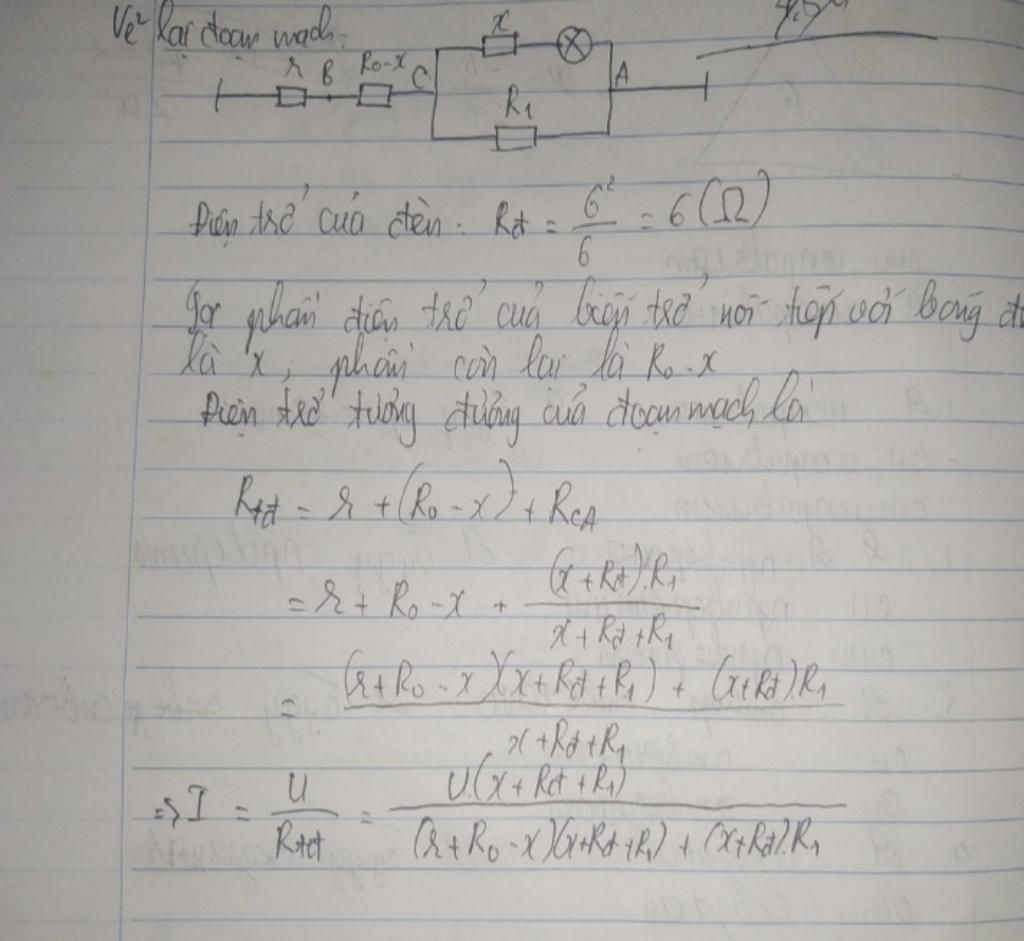 Vẽ lại đoạn mạch:
x
r B R₀-x C A
R₁
Điện trở của đèn: Rđ = 6²/6 = 6 (Ω)
Gọi phần điện trở của biến trở nối tiếp với bóng đ
là x, phần còn lại là R₀-x
Điện trở tương đương của đoạn mạch là
Rtđ = r + (R₀ - x) + RCA
= r + R₀ - x + (x + Rđ).R₁ / x + Rđ + R₁
= (r + R₀ - x)(x + Rđ + R₁) + (x + Rđ).R₁ / x + Rđ + R₁
=> I = U / Rtđ = U.(x + Rđ + R₁) / (r + R₀ - x)(x + Rđ + R₁) + (x + Rđ).R₁